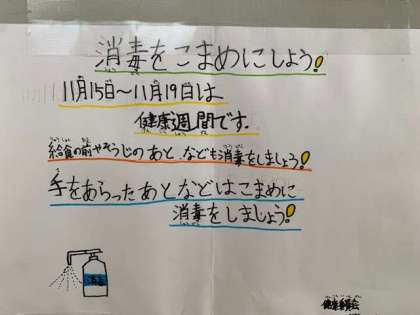 消毒をこまめにしよう!
11月15日〜11月19日は
健康週間です。
給食の前やそうじのあと、なども消毒をしましょう!
手をあらったあとなどはこまめに
消毒をしましょう!
健康委員会